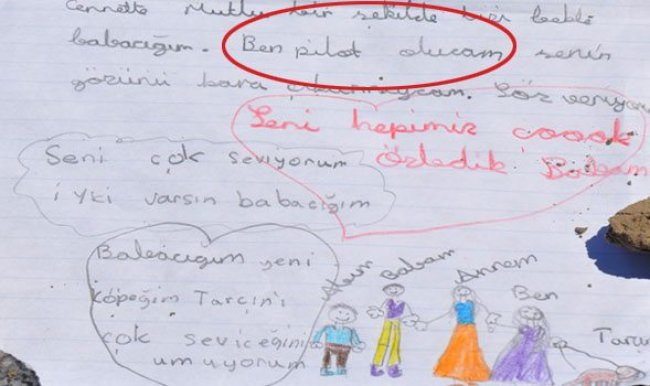 Cennette Mutlu bir şekilde bizi bekle
babacığım. Ben pilot olucam senin
gözünü kara çıkarmıycam. Söz veriyorum
Seni hepimiz çoook
özledik Babam
Seni çok seviyorum
iyki varsın babacığım
Babacığım yeni
köpeğim Tarçın'ı
çok seviceğini
umuyorum
Abim Babam Annem Ben Tarçın